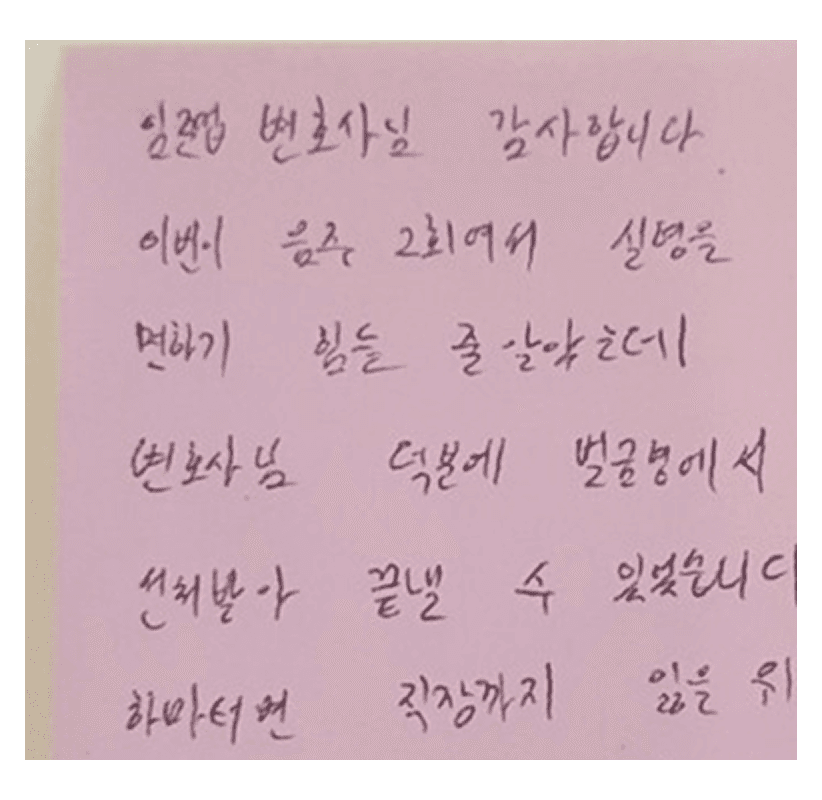 임준엽 변호사님 감사합니다.
이번이 음주 2회여서 실형을
면하기 힘들 줄 알았는데
변호사님 덕분에 벌금형에서
선처받아 끝낼 수 있었습니다
하마터면 직장까지 잃을 위